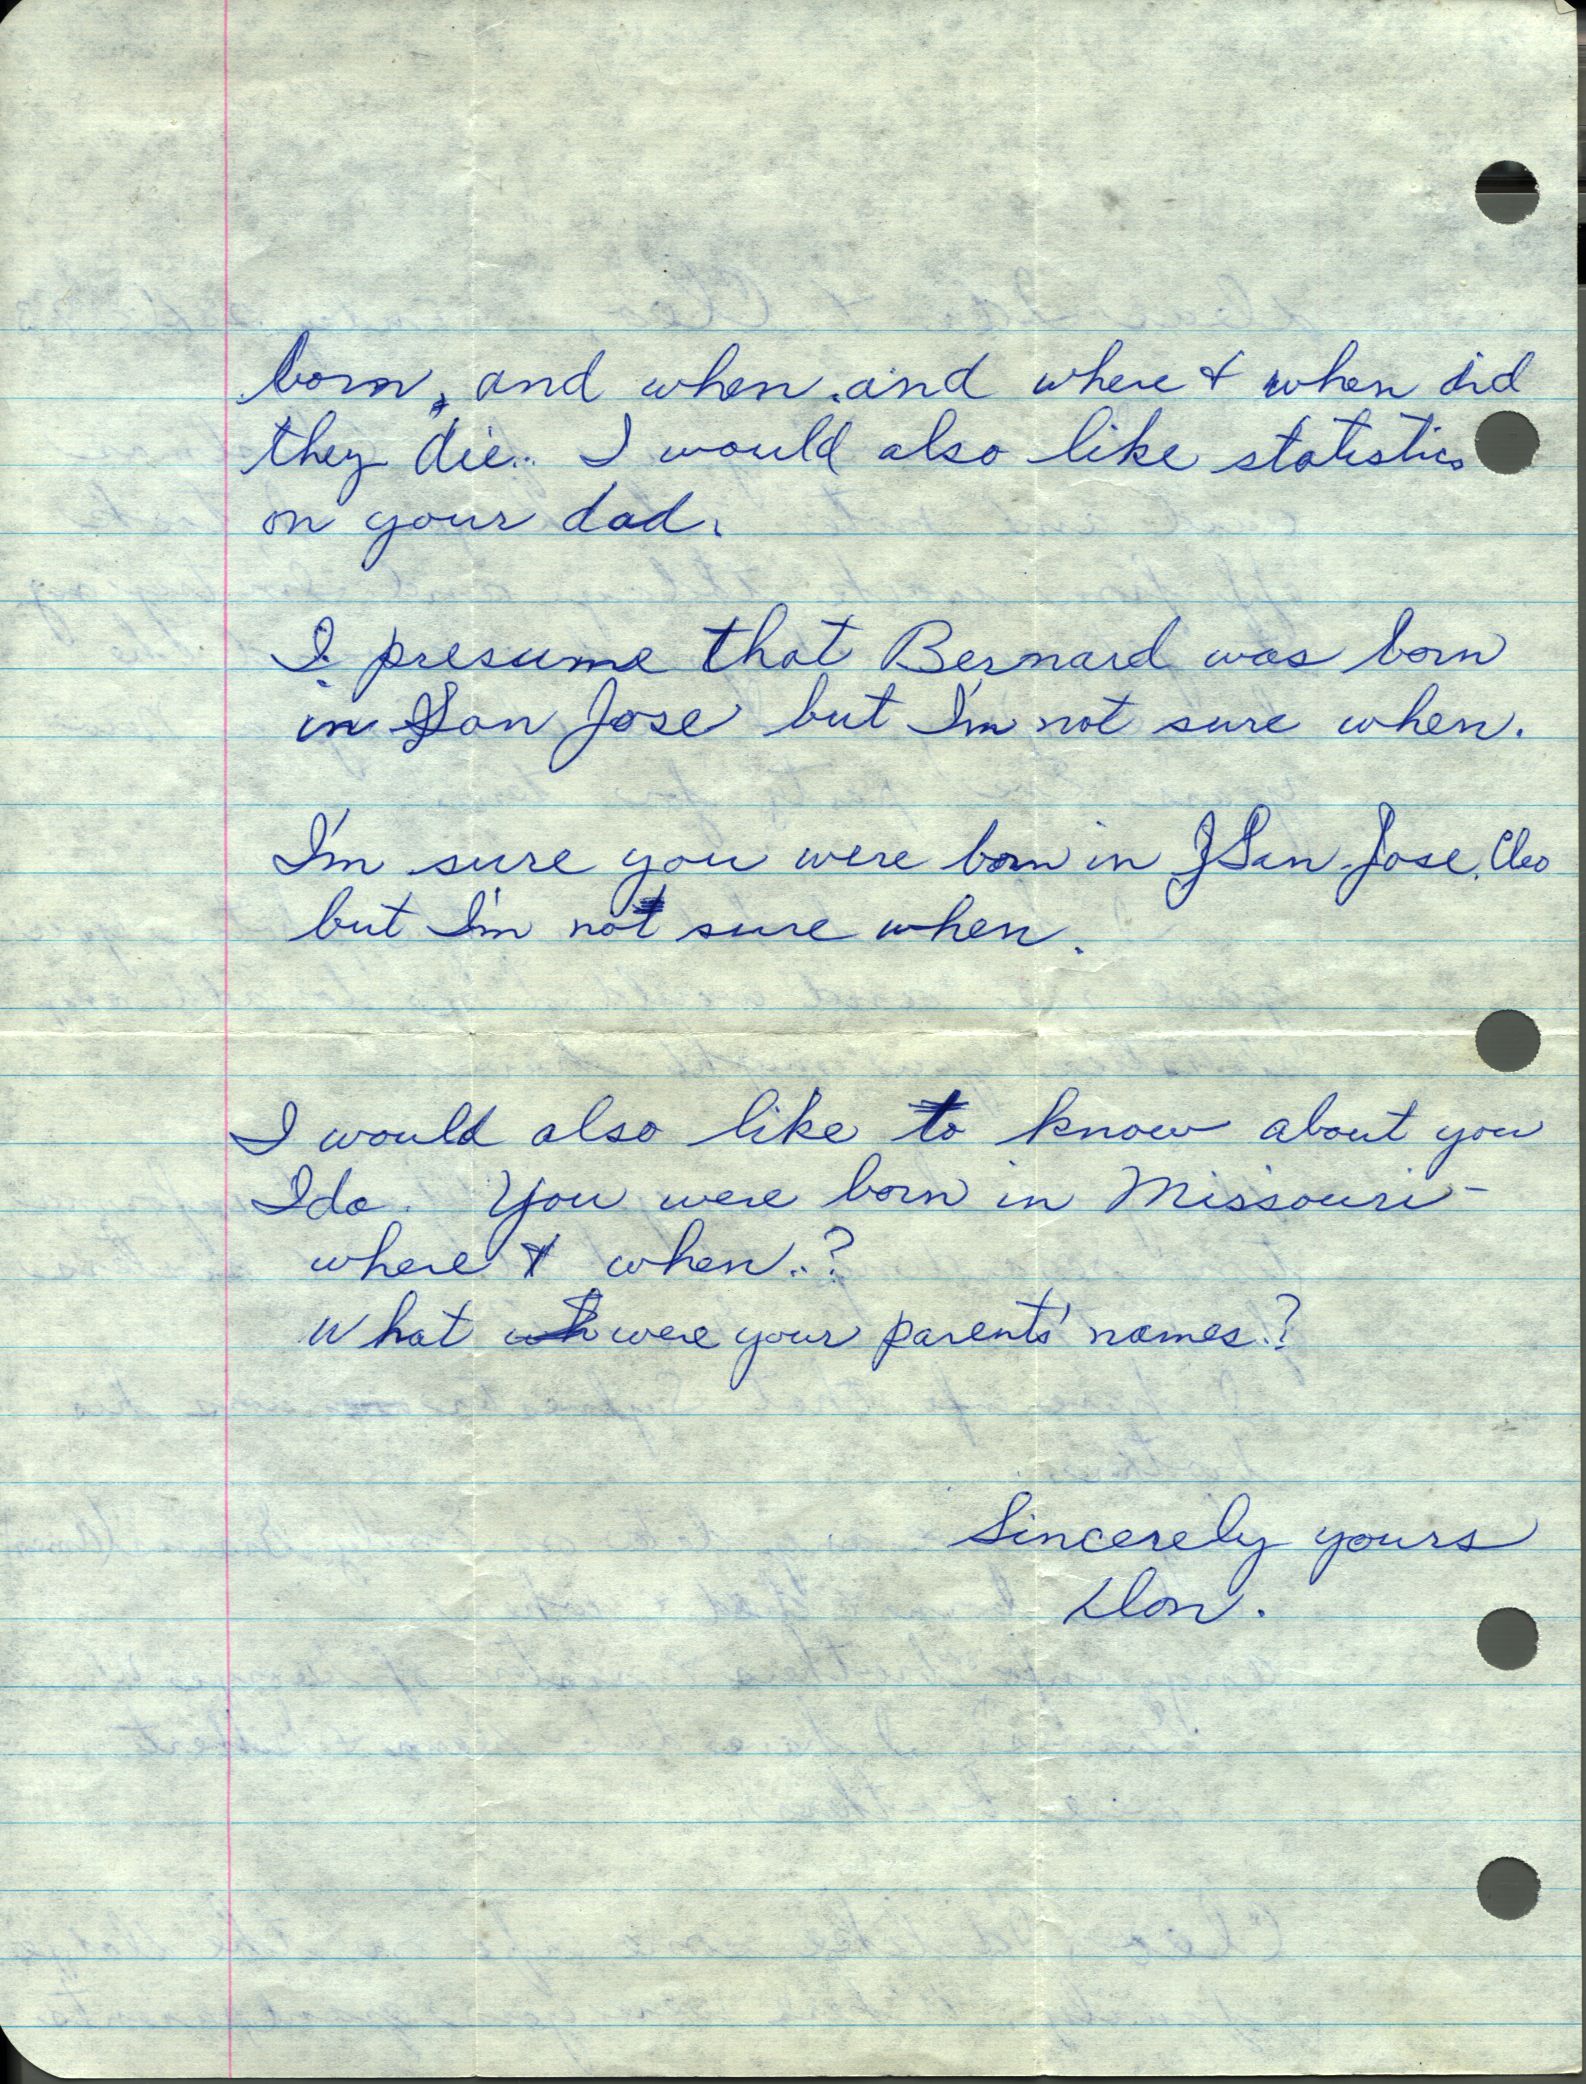 born, and when. and where & when did
they die.. I would also like statistics
on your dad.
I presume that Bernard was born
in San Jose but I'm not sure when.
I'm sure you were born in San Jose, Cleo
but I'm not sure when.
I would also like to know about you
Ida. You were born in Missouri -
where & when..?
What were your parents' names.?
Sincerely yours
Don.